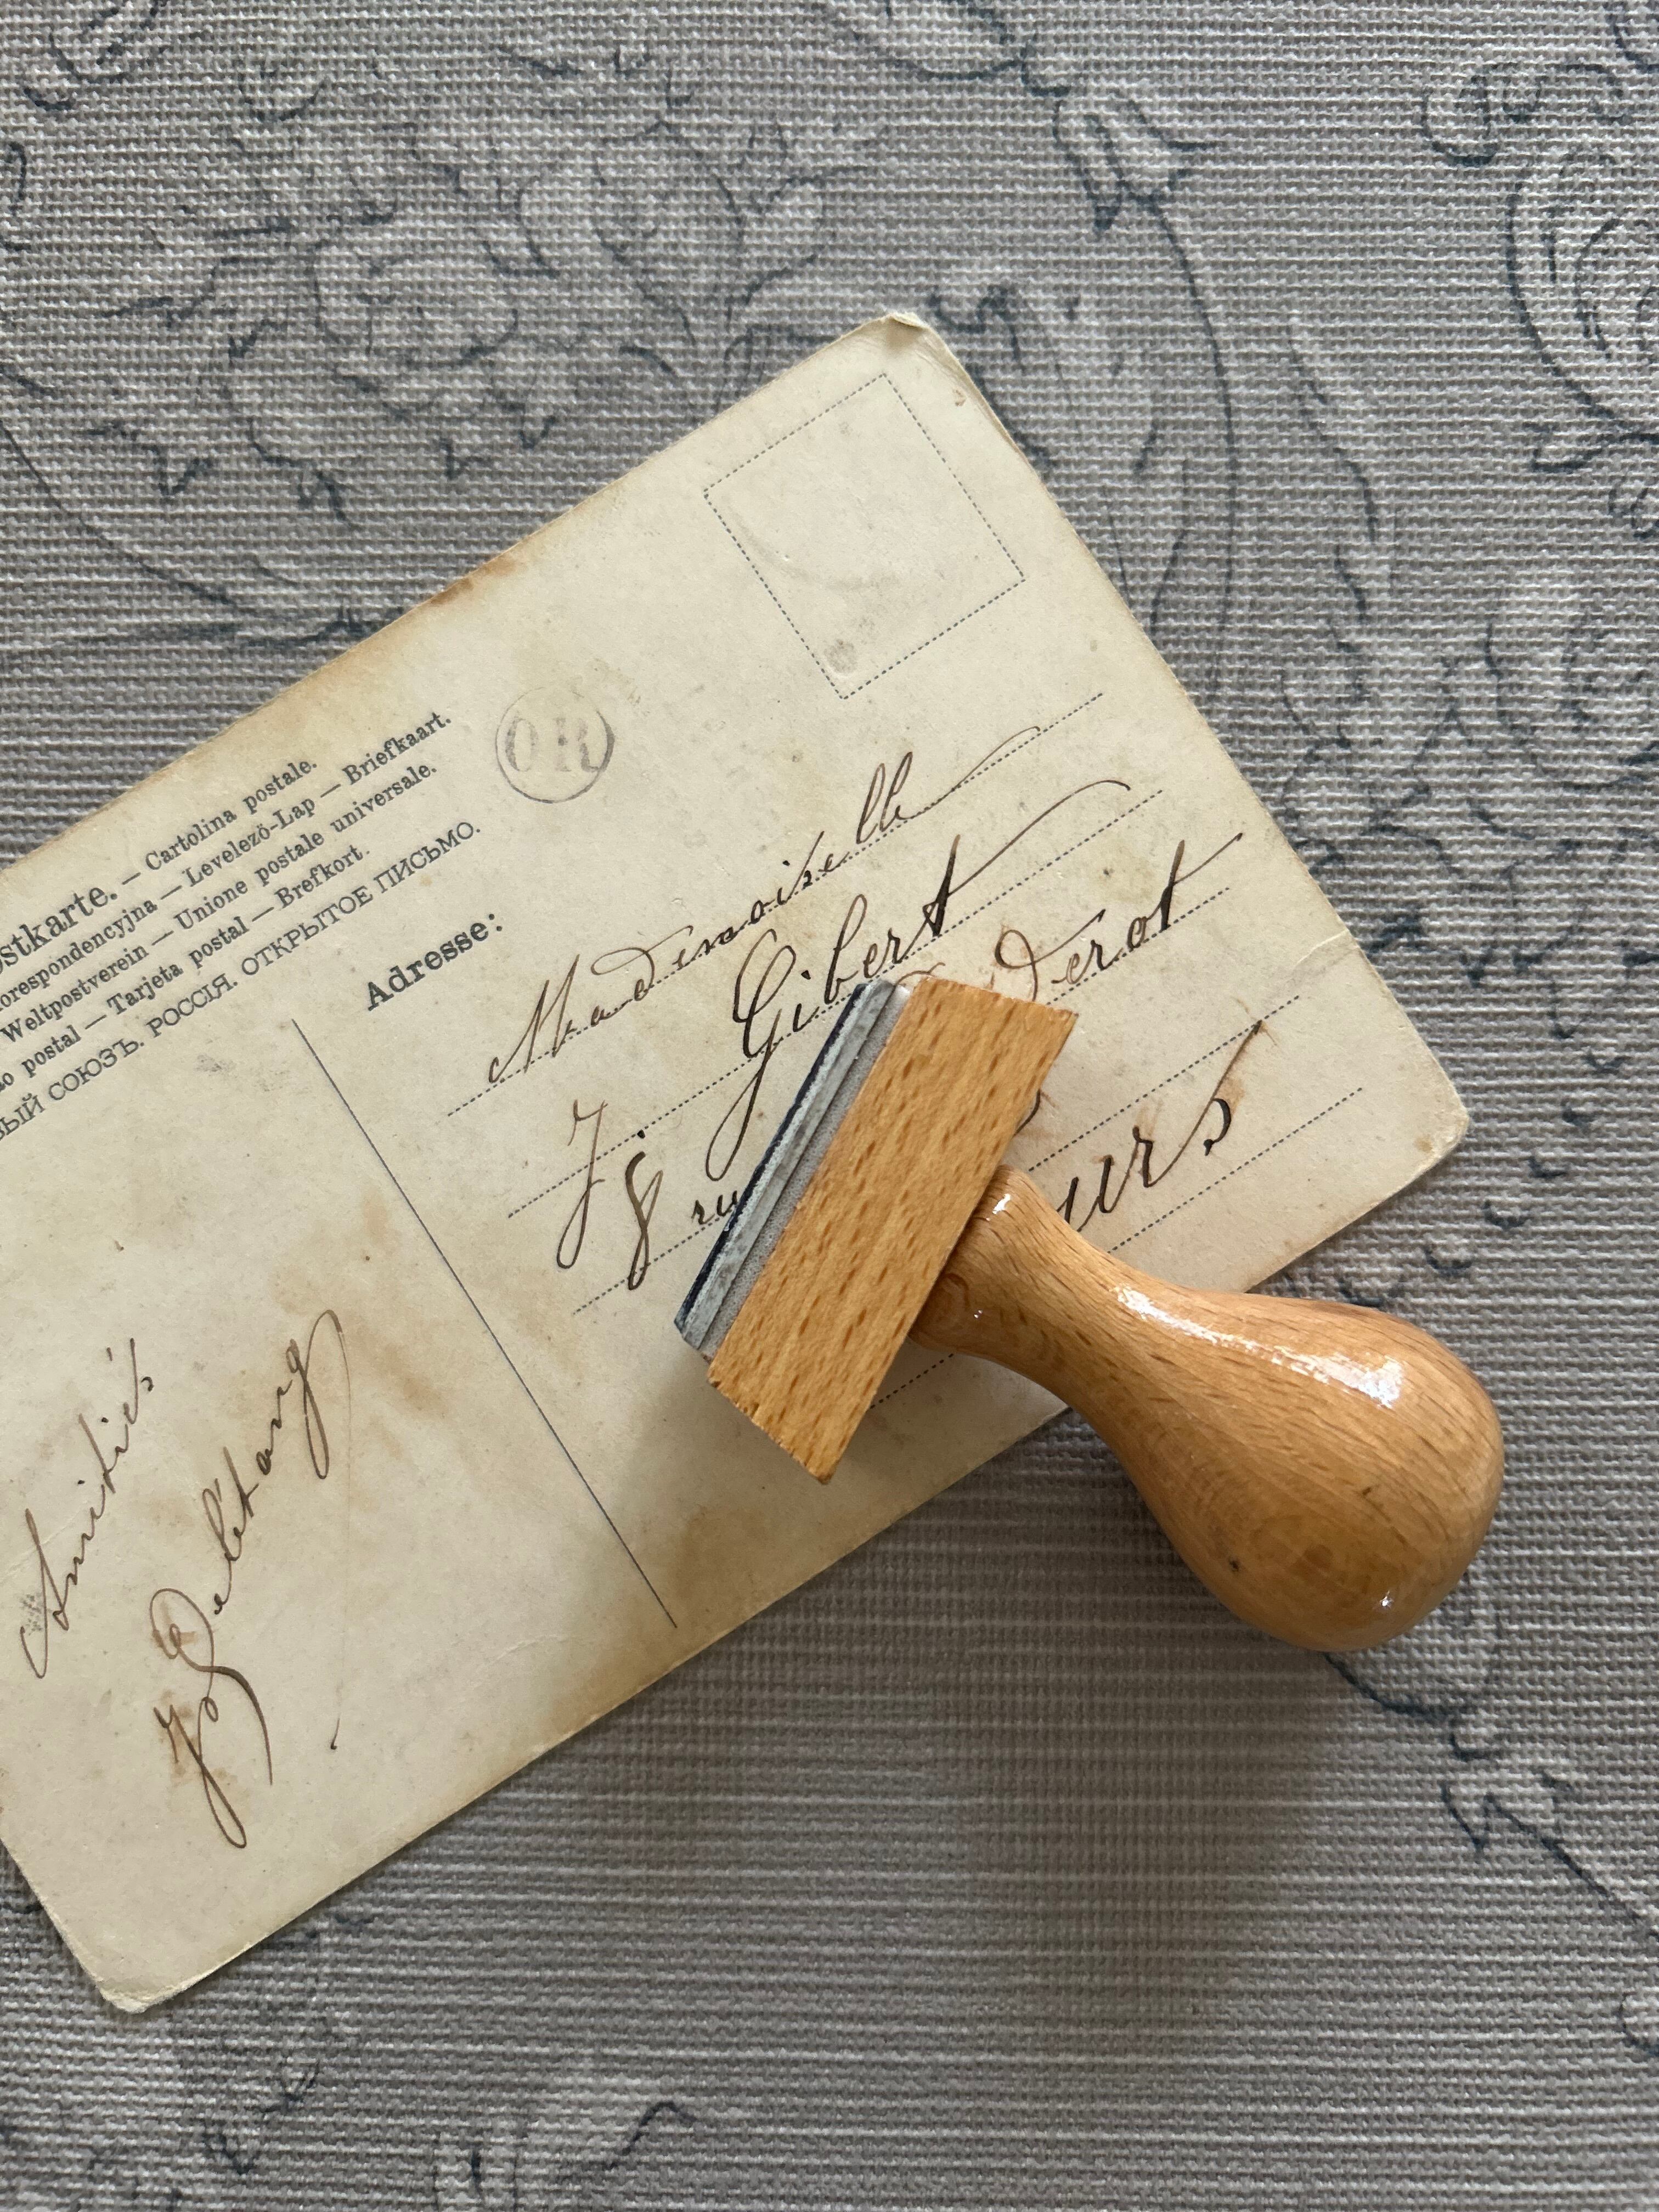 ostkarte. — Cartolina postale.
orespondencyjna — Levelező-Lap — Briefkaart.
Weltpostverein — Unione postale universale.
o postal — Tarjeta postal — Brefkort.
ВЫЙ СОЮЗЪ. РОССІЯ. ОТКРЫТОЕ ПИСЬМО.
OR
Adresse:
Mademoiselle
J. Gibert
8 ru derot
urs
Amitiés